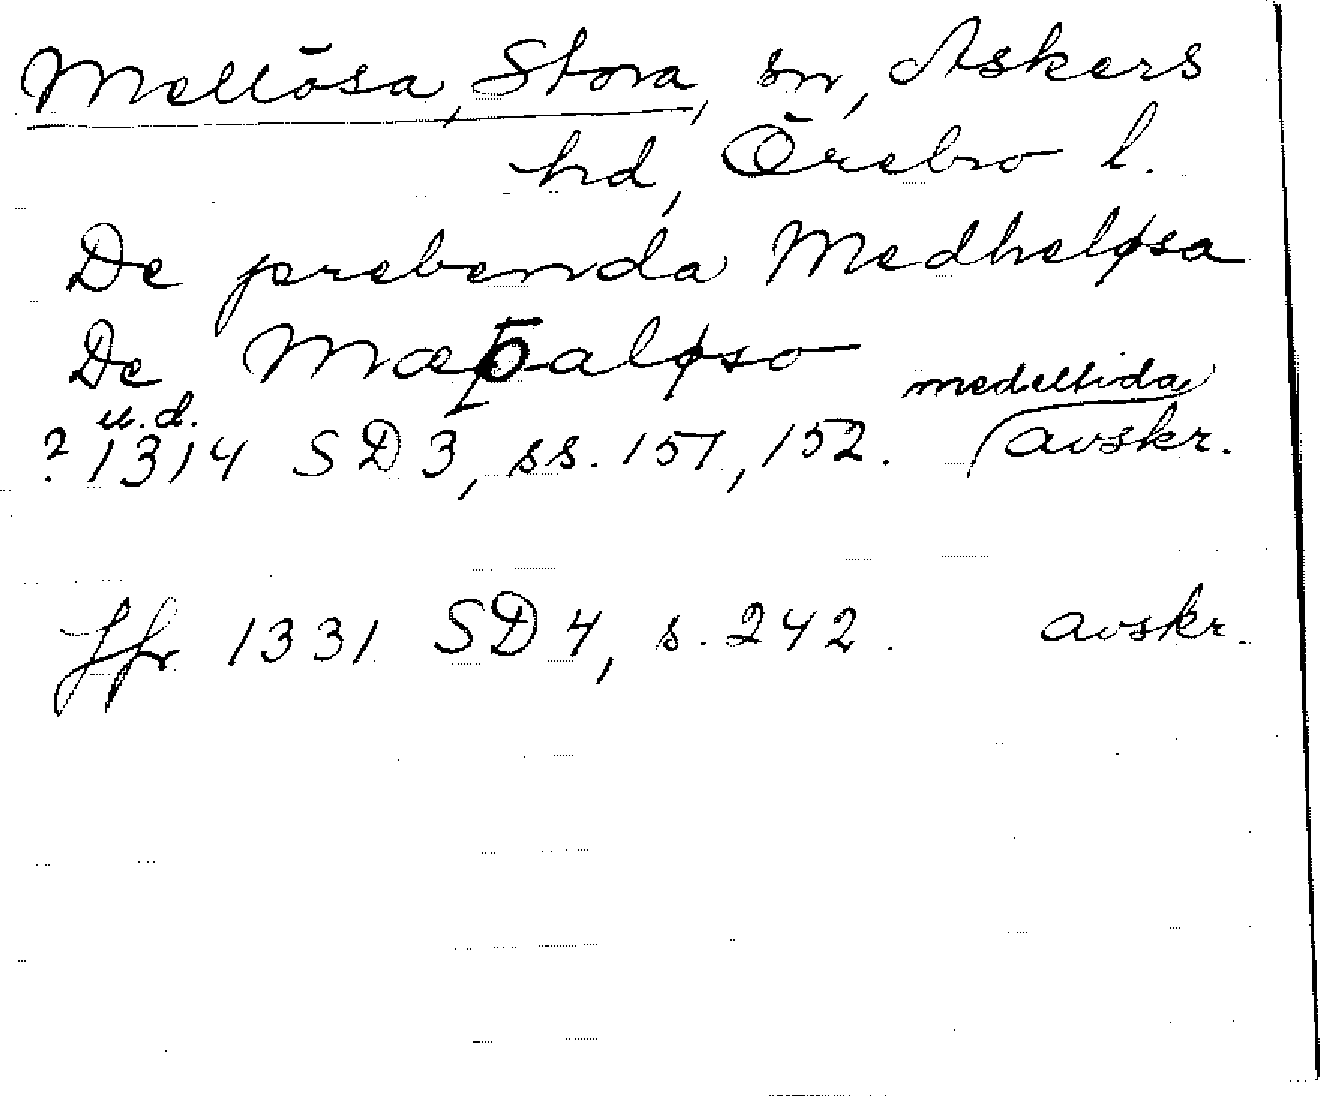 Mellösa, Stora, sn, Askers
hd, Örebro l.
De prebenda Medheløsa
De Mæþaløso
u.d.
? 1314 SD 3, ss. 151, 152. medeltida avskr.
Jfr 1331 SD 4, s. 242. avskr.